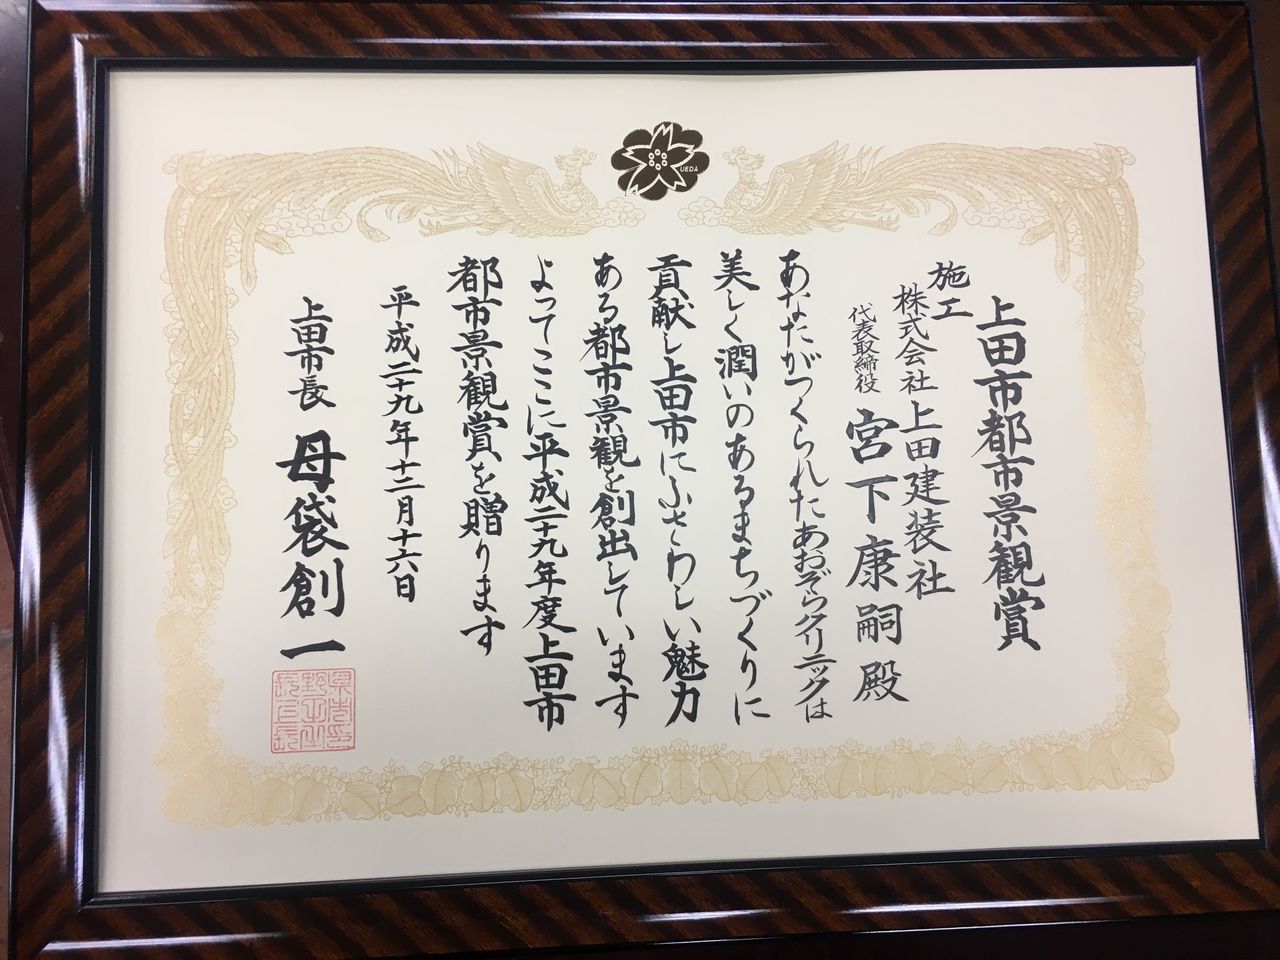 上田市都市景観賞
施工
株式会社上田建装社
代表取締役 宮下康嗣殿
あなたがつくられたあおぞらクリニックは
美しく潤いのあるまちづくりに
貢献し上田市にふさわしい魅力
ある都市景観を創出しています
よってここに平成二十九年度上田市
都市景観賞を贈ります
平成二十九年十二月十六日
上田市長 母袋創一
UEDA